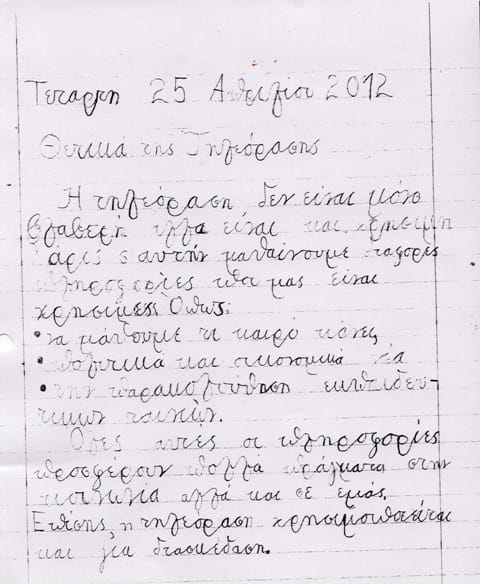 Τεταρτη 25 Απριλίου 2012
Θετικά της Τηλεόρασης
Η τηλεόραση δεν είναι μόνο
βλαβερή αλλά είναι και χρήσιμη
Χάρις σ αυτήν μαθαίνουμε
πληροφορίες που μας είναι
χρήσιμες Όπως:
• να μάθουμε τι καιρό κάνει
• πολιτικά και οικονομικά νέα
• την παρακολούθηση εκπαιδευ-
τικων ταινιών.
Ολες αυτες οι πληροφορίες
προσφερουν πολλά πράγματα στην
κοινωνία αλλά και σε εμάς.
Επισης, η τηλεόραση χρησιμοποιείται
και για διασκέδαση.